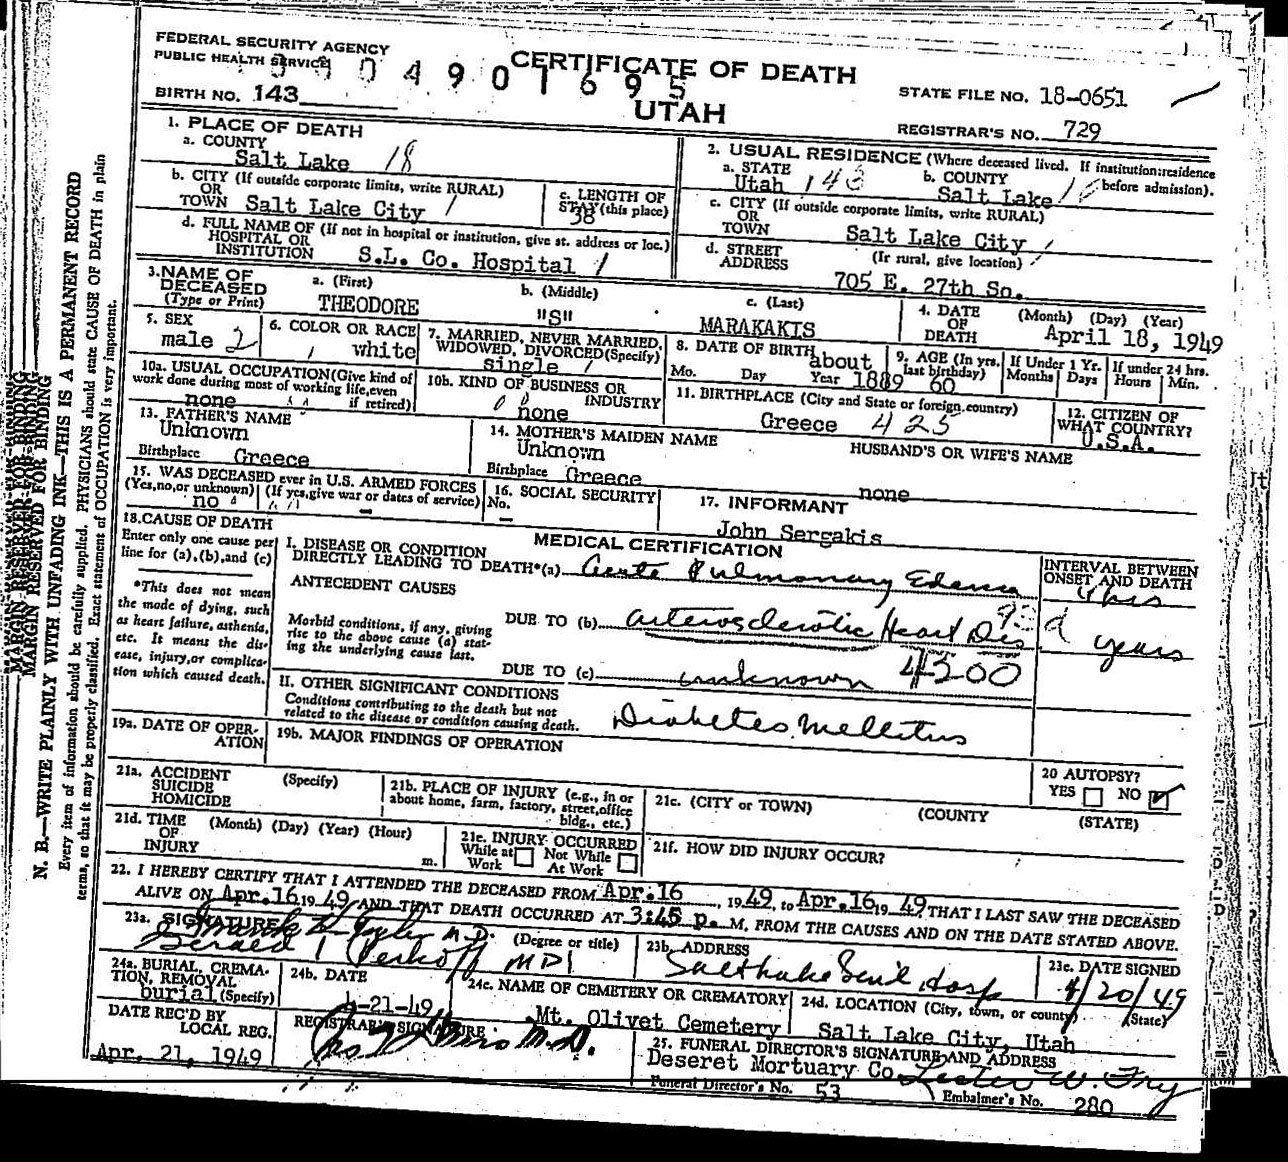 FEDERAL SECURITY AGENCY
PUBLIC HEALTH SERVICE
0 4 9 0 1 6 9 5
CERTIFICATE OF DEATH
UTAH
BIRTH NO. 143
STATE FILE NO. 18-0651
REGISTRAR'S NO. 729
1. PLACE OF DEATH
a. COUNTY
Salt Lake 18
b. CITY (If outside corporate limits, write RURAL)
OR
TOWN Salt Lake City
c. LENGTH OF
STAY (this place)
38
d. FULL NAME OF (If not in hospital or institution, give st. address or loc.)
HOSPITAL OR
INSTITUTION S.L. Co. Hospital
2. USUAL RESIDENCE (Where deceased lived. If institution:residence
before admission).
a. STATE Utah 143
b. COUNTY Salt Lake
c. CITY (If outside corporate limits, write RURAL)
OR
TOWN Salt Lake City
d. STREET (Ir rural, give location)
ADDRESS 705 E. 27th So.
3.NAME OF
DECEASED
(Type or Print)
a. (First) THEODORE
b. (Middle) "S"
c. (Last) MARAKAKIS
4. DATE
OF
DEATH
(Month) (Day) (Year)
April 18, 1949
5. SEX
male 2
6. COLOR OR RACE
white
7. MARRIED, NEVER MARRIED,
WIDOWED, DIVORCED(Specify)
single
8. DATE OF BIRTH about
Mo. Day Year 1889
9. AGE (In yrs.
last birthday)
60
If Under 1 Yr.
Months Days
If under 24 hrs.
Hours Min.
10a. USUAL OCCUPATION(Give kind of
work done during most of working life,even
if retired)
none
10b. KIND OF BUSINESS OR
INDUSTRY
none
11. BIRTHPLACE (City and State or foreign country)
Greece 425
12. CITIZEN OF
WHAT COUNTRY?
U.S.A.
13. FATHER'S NAME
Unknown
Birthplace Greece
14. MOTHER'S MAIDEN NAME
Unknown
Birthplace Greece
HUSBAND'S OR WIFE'S NAME
none
15. WAS DECEASED ever in U.S. ARMED FORCES
(Yes,no,or unknown) (If yes,give war or dates of service)
no -
16. SOCIAL SECURITY
No.
-
17. INFORMANT
John Sergakis
18.CAUSE OF DEATH
Enter only one cause per
line for (a),(b),and (c)
*This does not mean
the mode of dying, such
as heart failure, asthenia,
etc. It means the dis-
ease, injury,or complica-
tion which caused death.
MEDICAL CERTIFICATION
I. DISEASE OR CONDITION
DIRECTLY LEADING TO DEATH*(a) Acute Pulmonary Edema
ANTECEDENT CAUSES
Morbid conditions, if any, giving
rise to the above cause (a) stat-
ing the underlying cause last.
DUE TO (b) arteriosclerotic Heart Dis
DUE TO (c) unknown 4500
INTERVAL BETWEEN
ONSET AND DEATH
hrs
years
II. OTHER SIGNIFICANT CONDITIONS
Conditions contributing to the death but not
related to the disease or condition causing death.
Diabetes Mellitus
19a. DATE OF OPER-
ATION
19b. MAJOR FINDINGS OF OPERATION
20 AUTOPSY?
YES NO
21a. ACCIDENT
SUICIDE
HOMICIDE
(Specify)
21b. PLACE OF INJURY (e.g., in or
about home, farm, factory, street,office
bldg., etc.)
21c. (CITY or TOWN) (COUNTY (STATE)
21d. TIME
OF
INJURY
(Month) (Day) (Year) (Hour)
m.
21e. INJURY OCCURRED
While at Not While
Work At Work
21f. HOW DID INJURY OCCUR?
22. I HEREBY CERTIFY THAT I ATTENDED THE DECEASED FROM Apr.16, 1949, to Apr.16 1949, THAT I LAST SAW THE DECEASED
ALIVE ON Apr.16 1949 AND THAT DEATH OCCURRED AT 3:45 p. M, FROM THE CAUSES AND ON THE DATE STATED ABOVE.
23a. SIGNATURE M.D. (Degree or title)
Gerald Perkoff MD
23b. ADDRESS
Salt Lake Gen'l Hosp
23c. DATE SIGNED
4/20/49
24a. BURIAL, CREMA-
TION, REMOVAL
burial (Specify)
24b. DATE
4-21-49
24c. NAME OF CEMETERY OR CREMATORY
Mt. Olivet Cemetery
24d. LOCATION (City, town, or county) (State)
Salt Lake City, Utah
DATE REC'D BY
LOCAL REG.
Apr. 21, 1949
REGISTRAR'S SIGNATURE
M.D.
25. FUNERAL DIRECTOR'S SIGNATURE AND ADDRESS
Deseret Mortuary Co Lester W. Fry
Funeral Director's No. 53
Embalmer's No. 280
MARGIN RESERVED FOR BINDING
N. B.—WRITE PLAINLY WITH UNFADING INK—THIS IS A PERMANENT RECORD
Every item of information should be carefully supplied. PHYSICIANS should state CAUSE OF DEATH in plain
terms, so that it may be properly classified. Exact statement of OCCUPATION is very important.